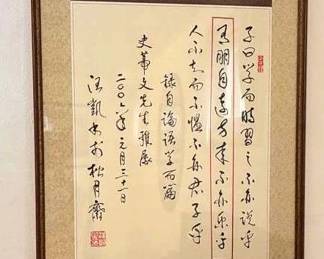 子曰学而時習之不亦说乎
有朋自遠方来不亦乐乎
人不知而不愠不亦君子乎
錄自論语学而篇
史蒂文先生雅属
二〇〇八年元月三十一日
凯书於松月齋